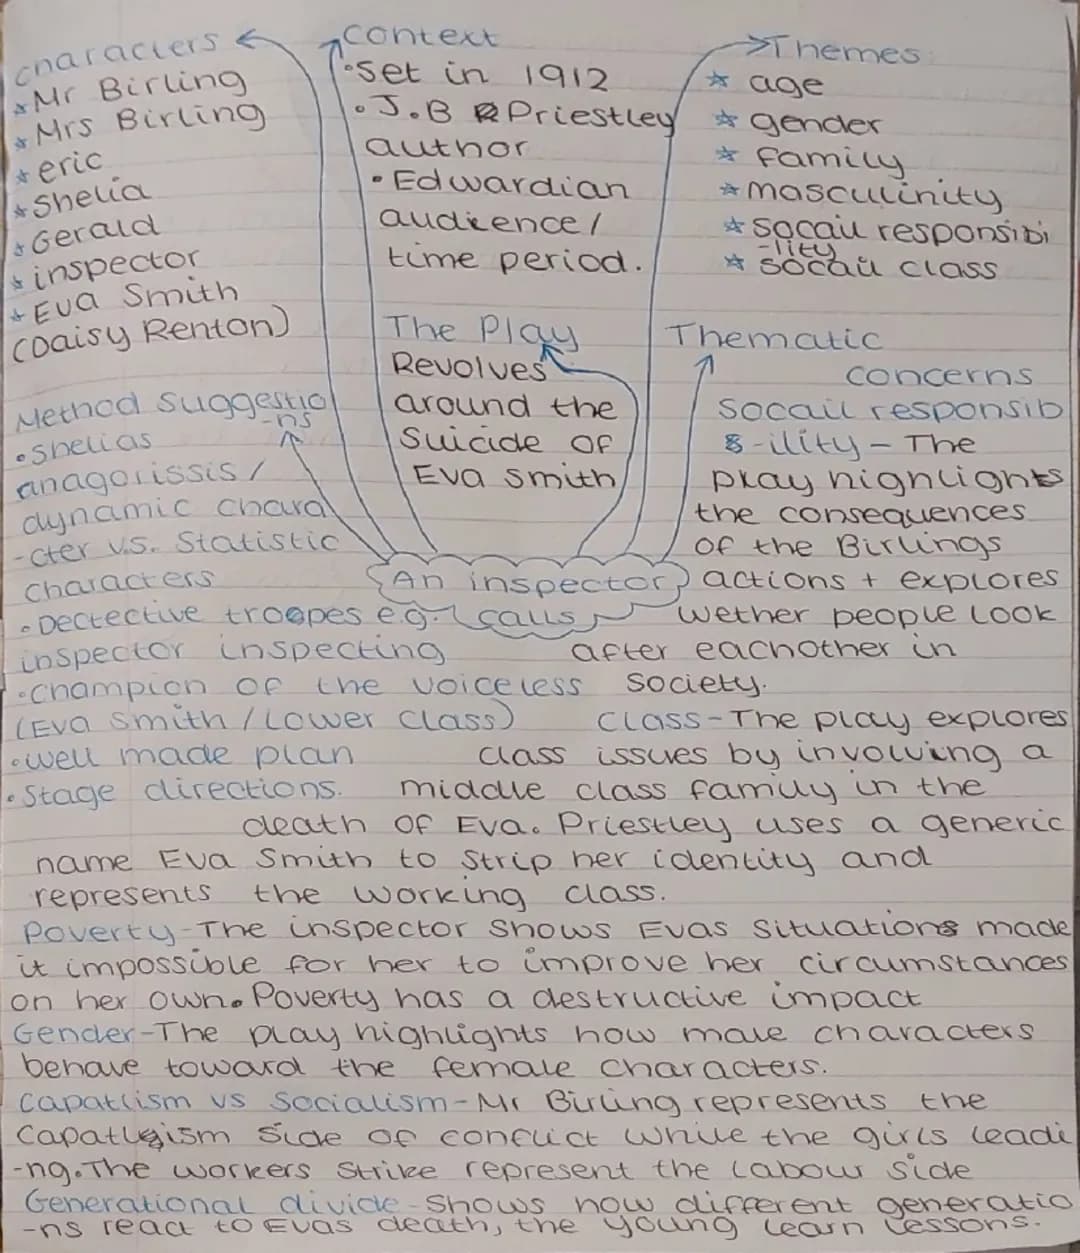 Characters
* Mr Birling
* Mrs Birling
* eric
* Shelia
* Gerald
* inspector
* Eva Smith
(Daisy Renton)
Context
• Set in 1912
• J.B Priestley
author
• Edwardian
audience /
time period.
Themes
* age
* gender
* family
* masculinity
* Socail responsibi
-lity
* socail class
The Play
Revolves
around the
Suicide of
Eva Smith
Method Suggestio
-ns
• Shelias
anagorissis /
dynamic chara
-cter v.s. Statistic
characters
• Dectective troopes e.g.
inspector inspecting
• Champion of the voiceless
(Eva Smith / Lower class)
• well made plan
• Stage directions.
An inspector
calls
Thematic
concerns
Socail responsib
-ility - The
play highlights
the consequences
of the Birlings
actions + explores
wether people look
after eachother in
Society.
Class - The play explores
class issues by involving a
middle class family in the
death of Eva. Priestley uses a generic
name Eva Smith to strip her identity and
represents the working class.
Poverty - The inspector shows Evas situations made
it impossible for her to improve her circumstances
on her own. Poverty has a destructive impact
Gender - The play highlights how male characters
behave toward the female characters.
Capatlism vs Socialism - Mr Birling represents the
Capatlism side of conflict while the girls leadi
-ng. The workers strike represent the labour side
Generational divide - Shows how different generatio
-ns react to Evas death, the young learn lessons.